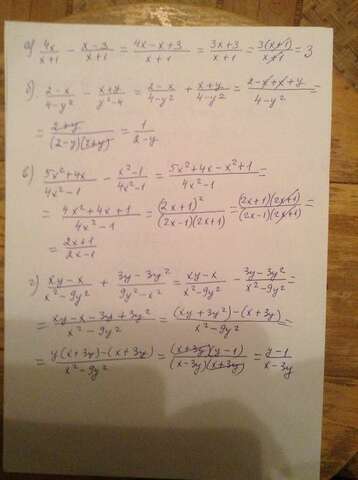 а) 4x/(x+1) - (x-3)/(x+1) = (4x-x+3)/(x+1) = (3x+3)/(x+1) = 3(x+1)/(x+1) = 3
б) (2-x)/(4-y²) - (x+y)/(y²-4) = (2-x)/(4-y²) + (x+y)/(4-y²) = (2-x+x+y)/(4-y²) =
= (2+y)/((2-y)(2+y)) = 1/(2-y)
в) (5x²+4x)/(4x²-1) - (x²-1)/(4x²-1) = (5x²+4x-x²+1)/(4x²-1) =
= (4x²+4x+1)/(4x²-1) = (2x+1)²/((2x-1)(2x+1)) = (2x+1)(2x+1)/((2x-1)(2x+1)) =
= (2x+1)/(2x-1)
г) (xy-x)/(x²-9y²) + (3y-3y²)/(9y²-x²) = (xy-x)/(x²-9y²) - (3y-3y²)/(x²-9y²) =
= (xy-x-3y+3y²)/(x²-9y²) = ((xy+3y²)-(x+3y))/(x²-9y²) =
= (y(x+3y)-(x+3y))/(x²-9y²) = (x+3y)(y-1)/((x-3y)(x+3y)) = (y-1)/(x-3y)